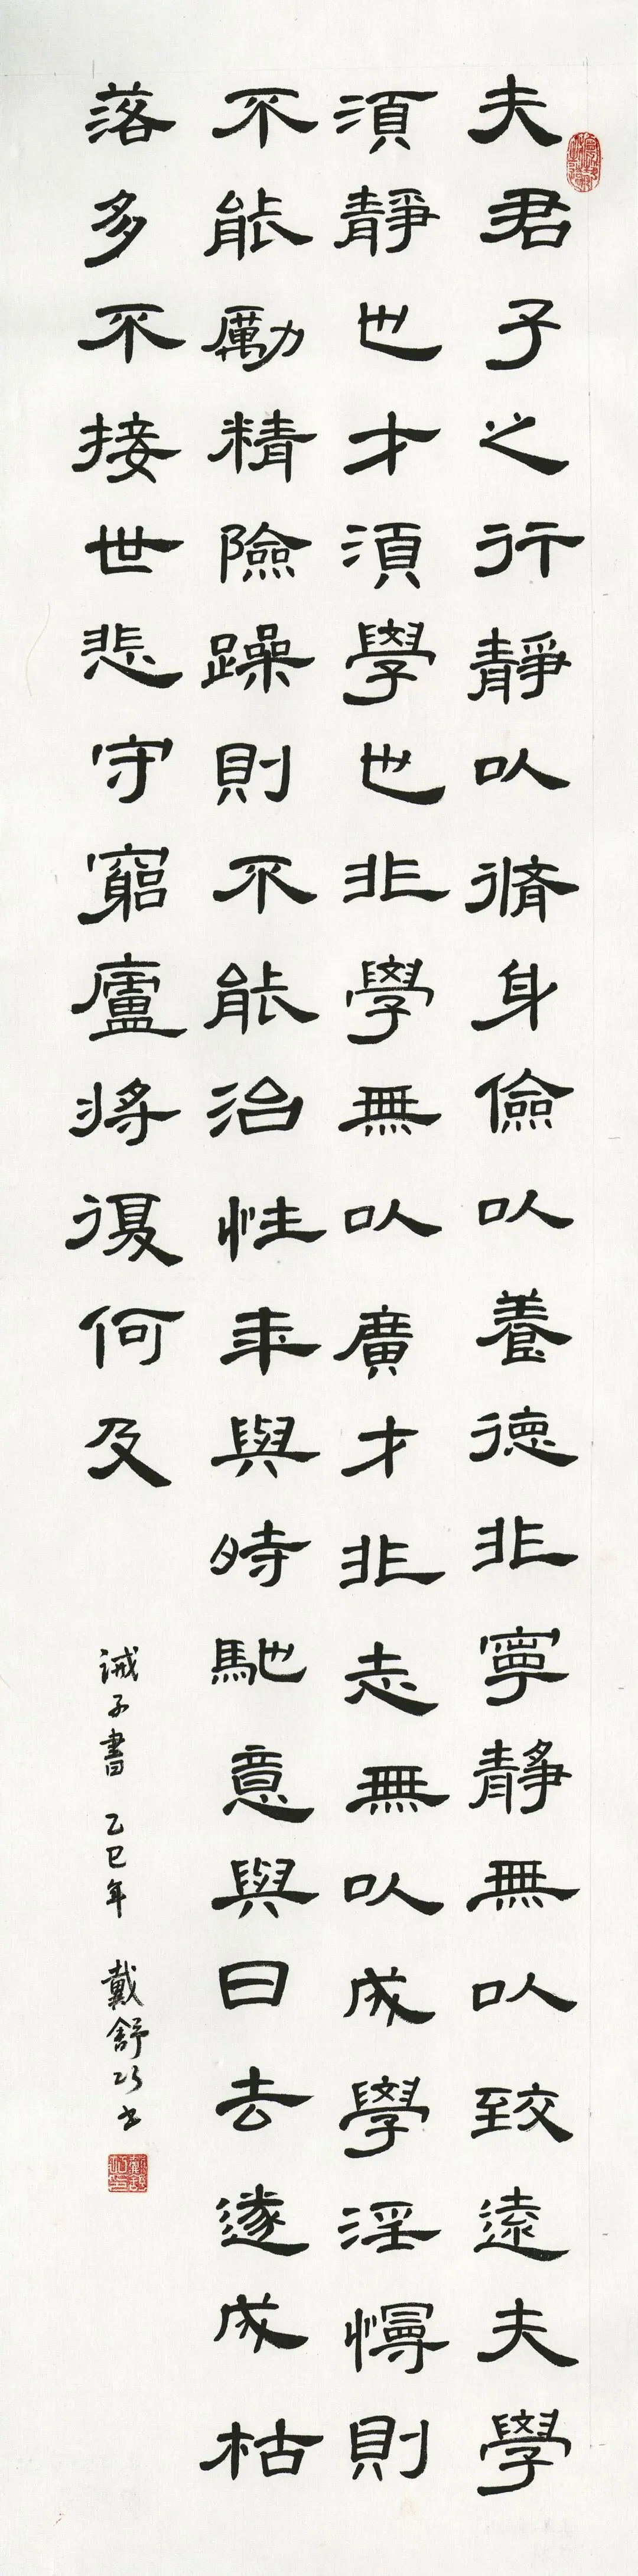 夫君子之行靜以脩身儉以養德非寧靜無以致遠夫學
須靜也才須學也非學無以廣才非志無以成學淫慢則
不能勵精險躁則不能治性年與時馳意與日去遂成枯
落多不接世悲守窮廬將復何及
誡子書 乙巳年 戴舒書